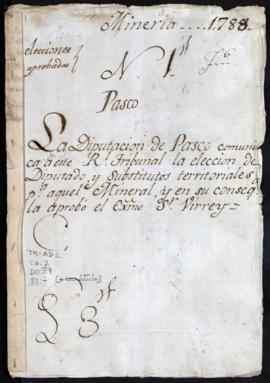 Mineria . . . . 1788
elecciones
aprobadas
N. 1
Pasco
La Diputacion de Pasco comuni
ca à este Rl. Tribunal la eleccion de
Diputado, y Substitutos territoriales
pa. aquel Mineral, y en su conseqa.
la aprobó el Exmo. Sr. Virrey =
TM-AD2